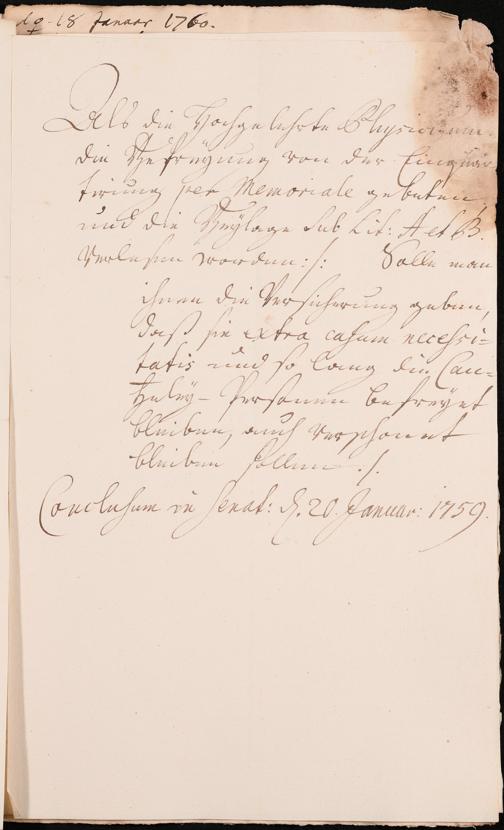 18 Januar, 1760.
Als die Hochgelehrte Physici um
die Befreÿung von der Einquar
tirung per Memoriale gebeten,
und die Beÿlage sub Lit: A et B.
verlesen worden :/: Solle man
ihnen die Versicherung geben,
daß sie extra casum necessi=
tatis und so lang die Can=
tzeleÿ-Personen befreÿet
bleiben, auch verschonet
bleiben sollen ./.
Conclusum in Senat: d. 20. Januar: 1759.